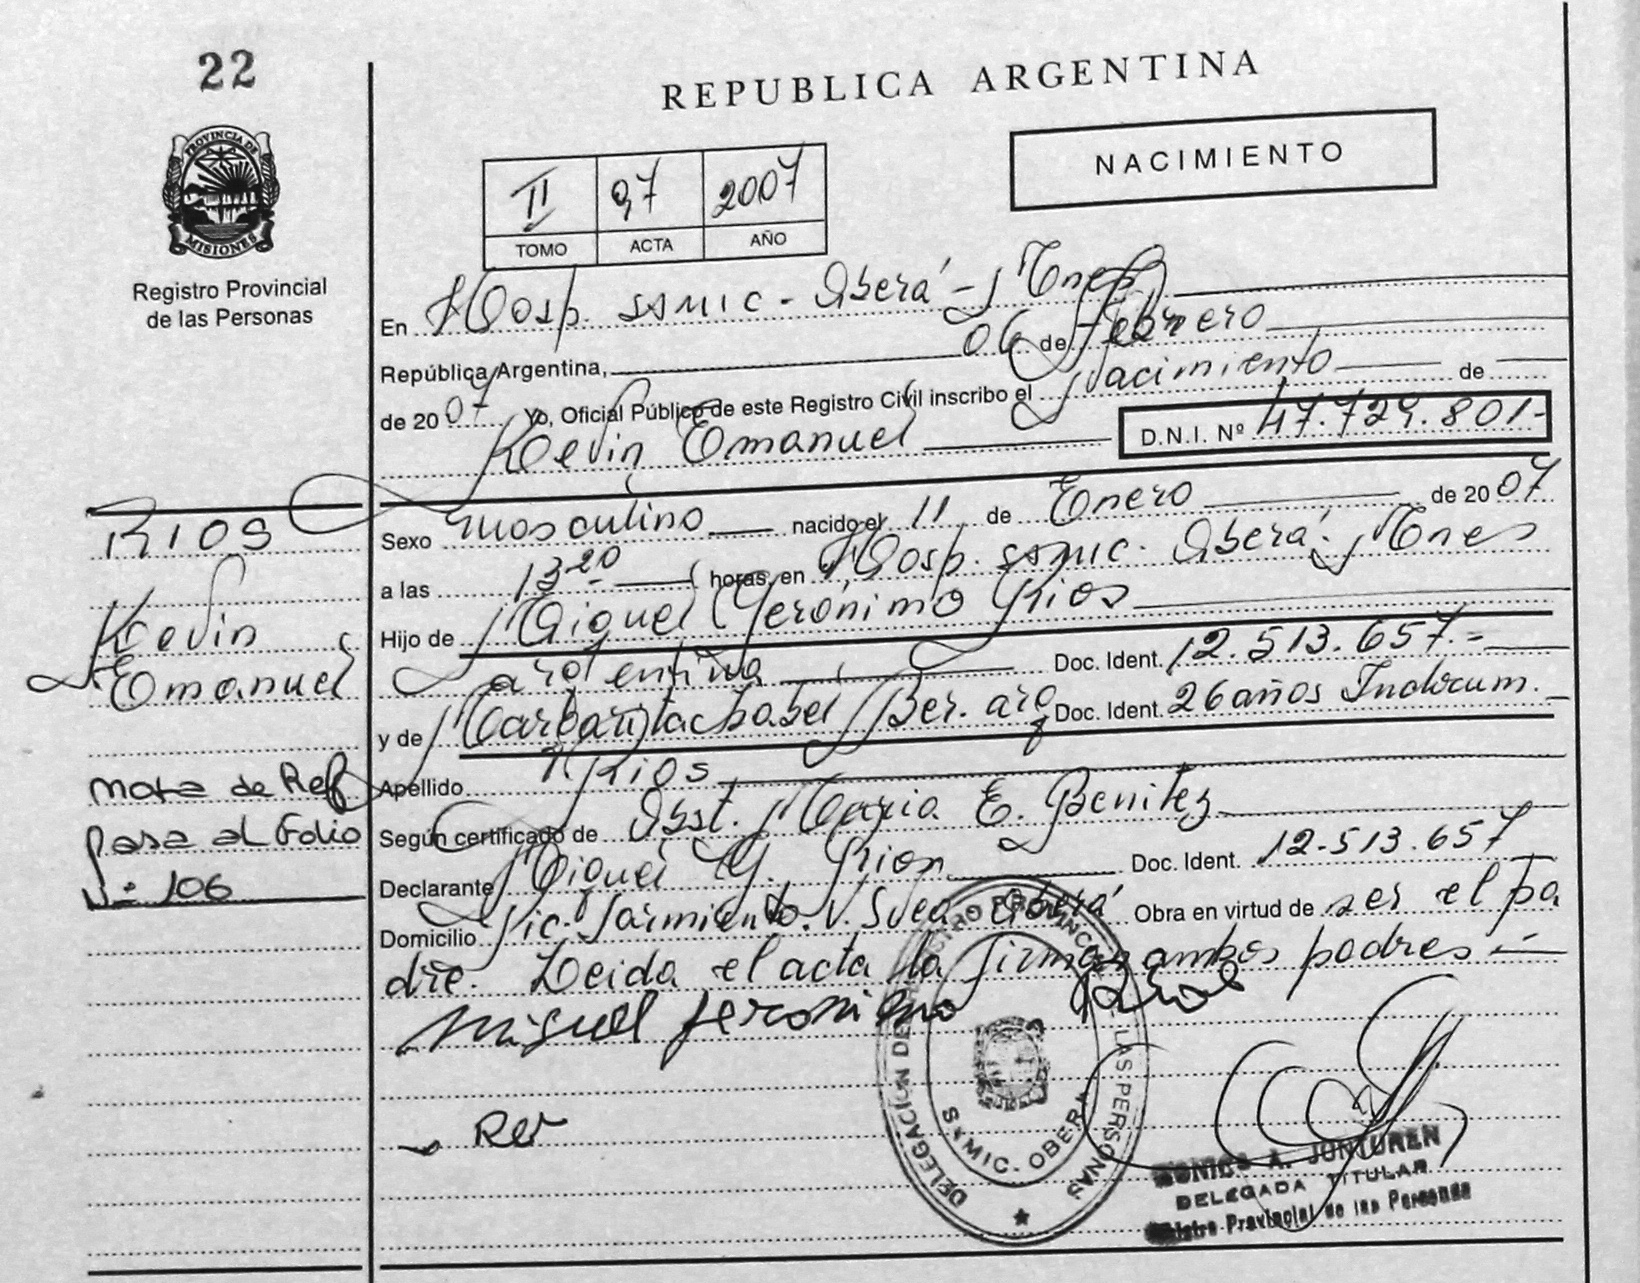 22
REPUBLICA ARGENTINA
NACIMIENTO
PROVINCIA DE MISIONES
Registro Provincial
de las Personas
II 97 2007
TOMO ACTA AÑO
En Hosp. SAMIC - Oberá - Mnes
República Argentina, 06 de Febrero
de 2007 Yo, Oficial Público de este Registro Civil inscribo el Nacimiento de
Kevin Emanuel D.N.I. Nº 47.729.801-
RIOS
Kevin
Emanuel
Sexo masculino nacido el 11 de Enero de 2007
a las 13-20 horas, en Hosp. SAMIC. Oberá. Mnes
Hijo de Miguel Gerónimo Rios
argentina Doc. Ident. 12.513.657.-
y de Doc. Ident. 26 años Indocum.
Apellido Rios
Nota de Ref
pasa al Folio
Nº 106
Según certificado de Obst. Maria E. Benitez
Declarante Miguel G. Rios Doc. Ident. 12.513.657
Domicilio Pic. Sarmiento. V. Svea. Oberá Obra en virtud de ser el pa
dre. Leida el acta la firman ambos padres
Miguel Jeronimo Rios
DELEGACION DEL REGISTRO PROVINCIAL DE LAS PERSONAS
SAMIC. OBERA
A. JONTUREN
DELEGADA TITULAR
Registro Provincial de las Personas